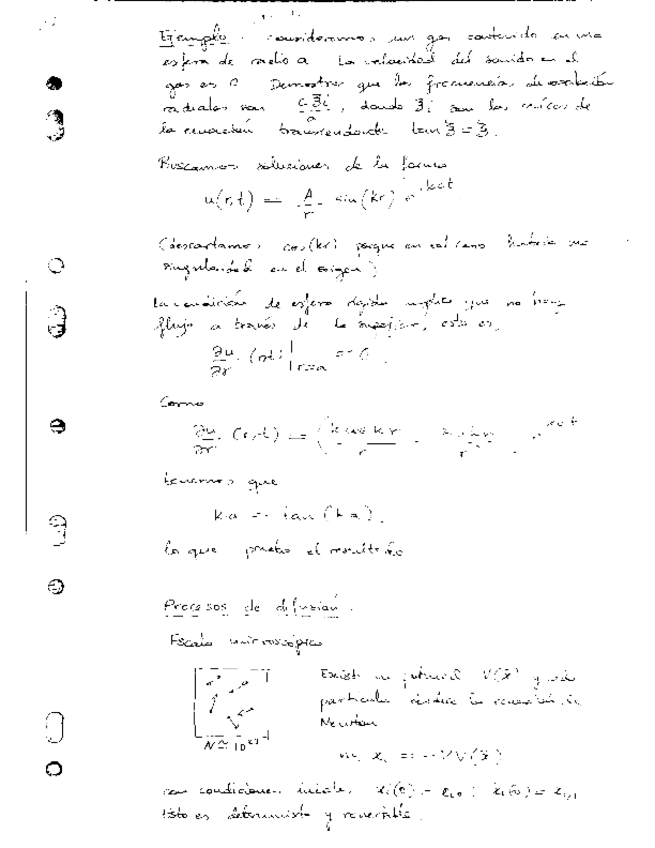 Ejemplo: consideramos un gas contenido en una
esfera de radio a La velocidad del sonido en el
gas es c Demostrar que las frecuencias de oscilación
radiales son cξi/a, donde ξi son las raíces de
la ecuación trascendente tan ξ = ξ.
Buscamos soluciones de la forma
u(r,t) = A/r sin(kr) e^{ikct}
(descartamos cos(kr) porque en tal caso habría una
singularidad en el origen)
La condición de esfera rígida implica que no hay
flujo a través de la superficie, esto es,
∂u/∂r (r,t)|_{r=a} = 0.
Como
∂u/∂r (r,t) = (k cos kr / r
tenemos que
ka = tan(ka),
lo que prueba el resultado
Procesos de difusión.
Escala microscópica
Existe un potencial V(x) y cada
partícula la ecuación de
Newton
N ≃ 10^23
= -∇V(x)
con condiciones iniciales
Esto es determinista y reversible.